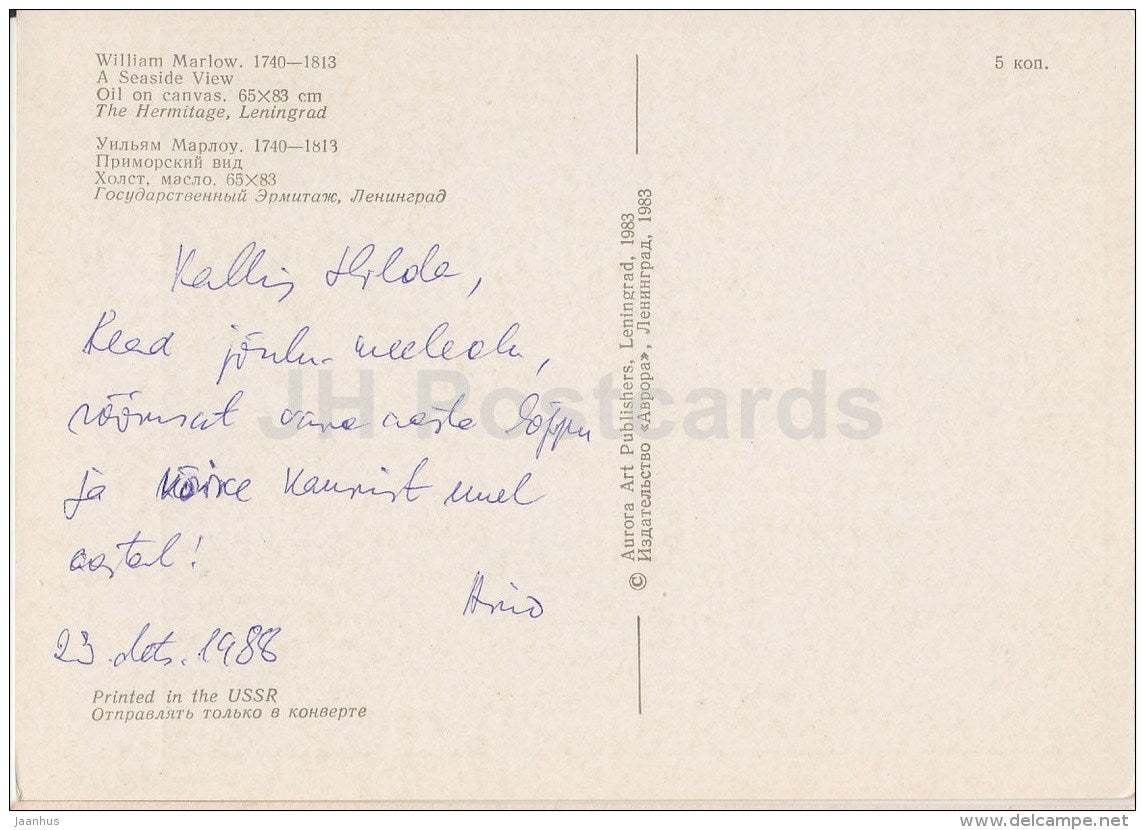 William Marlow. 1740—1813
A Seaside View
Oil on canvas. 65×83 cm
The Hermitage, Leningrad
Уильям Марлоу. 1740—1813
Приморский вид
Холст, масло. 65×83
Государственный Эрмитаж, Ленинград
Kallis Hilda,
Head jõulu-meeleolu,
rõõmsat vana aasta lõppu
ja kõike kaunist uuel
aastal!
23. dets. 1988
Printed in the USSR
Отправлять только в конверте
© Aurora Art Publishers, Leningrad, 1983
Издательство «Аврора», Ленинград, 1983
5 коп.
JH Postcards
Jaanhus
www.delcampe.net